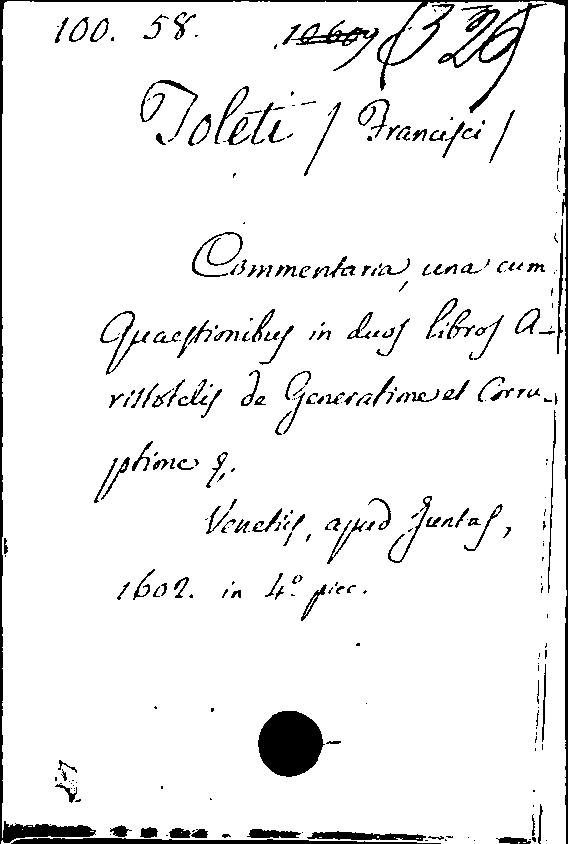 100. 58. 10609 (326)
Toleti / Francisci /
Commentaria, una cum
Quaestionibus in duos libros A-
ristotelis de Generatione et Corru-
ptione &.
Venetiis, apud Juntas,
1602. in 4º piec.